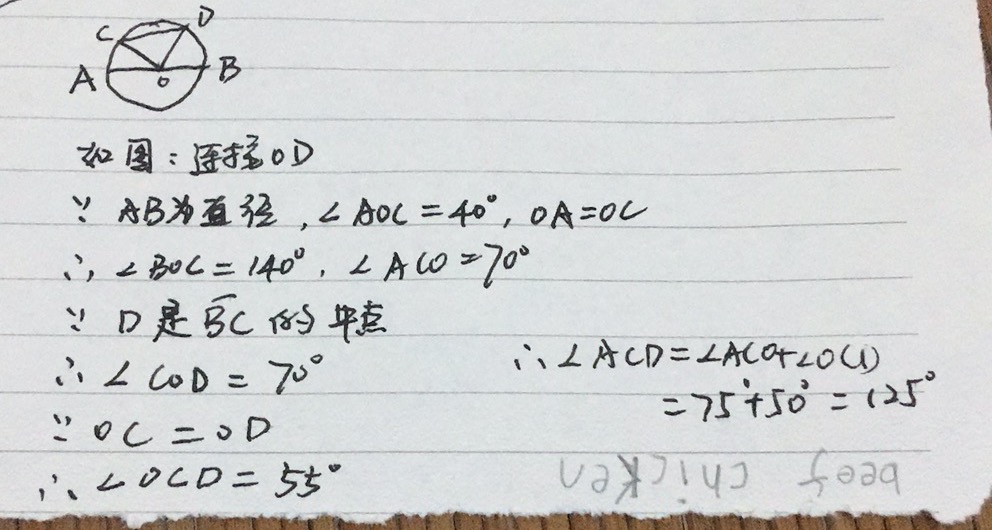 C D
A O B
如图：连接OD
∵ AB为直径，∠AOC=40°，OA=OC
∴ ∠BOC=140°，∠ACO=70°
∵ D是BC的中点
∴ ∠COD=70°
∵ OC=OD
∴ ∠OCD=55°
∴ ∠ACD=∠ACO+∠OCD
=75°+50°=125°
beef chicken